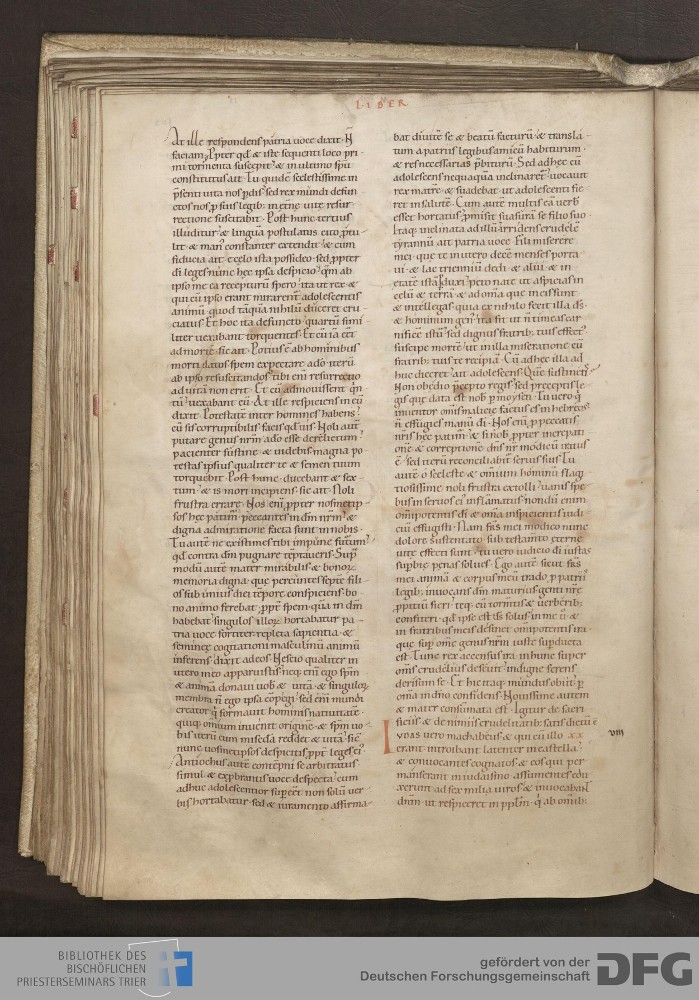 L I B E R
At ille respondens patria uoce dixit. N̄
faciam. Ppter qd̄ & iste sequenti loco pri-
mi tormenta suscepit. & in ultimo spū
constitutus ait. Tu quidē scelestissime in
p̄senti uita nos p̄dis. sed rex mundi defun-
ctos nos p suis legib; in et̄nę uitę resur-
rectione suscitabit. Post hunc tertius
illuditur. & linguā postulatus cito p̄tu-
lit. & man; constanter extendit. & cum
fiducia ait. E cęlo ista possideo. sed ppter
di leges nunc hec ipsa despicio. qm̄ ab
ipso me ea recepturū spero. ita ut rex &
qui cū ipso erant mirarent̄ adolescentis
animū. quod tāquā nihilū duceret cru-
ciatus. Et hoc ita defuncto. quartū simi-
liter uexabant torquentes. Et cū iā eēt
ad mortē. sic ait. Potius ē ab hominibus
morti datos spem expectare a dō. iterū
ab ipso resuscitandos. tibi eni resurrectio
ad uitā non erit. Et cū admouissent qn̄-
tū. uexabant eū. At ille respiciens in eū
dixit. Potestatē inter homines habens
cū sis corruptibilis facis qd̄ uis. Noli aut̄
putare genus nrm̄ a dō esse derelictum.
pacienter sustine. & uidebis magna po-
testas ipsius qualiter te & semen tuum
torquebit. Post hunc ducebant & sex-
tum. & is mori incipiens sic ait. Noli
frustra errare. Nos eni ppter nosmetip-
sos hęc patim̄. peccantes in dm̄ nrm̄. &
digna admiratione facta sunt in nobis.
Tu autē ne existimes tibi impune futurum
qd̄ contra dm̄ pugnare tēptaueris. Suprȧ
modū autē mater mirabilis & bonor;
memoria digna. quę pereuntes septē fili-
os sub unius diei tēpore conspiciens. bo-
no animo ferebat. ppt̄ spem quā in dm̄
habebat. singulos illor; hortabatur pa-
tria uoce fortiter repleta sapientia. &
semineę cogitationi masculinū animū
inserens. dixit ad eos. Nescio qualiter in
utero meo apparuistis. neq; eni ego spm̄
& anima donaui uob & uitā. & singulor;
membra n̄ ego ipsa cōpegi. sed eni mundi
creator q̇ formauit hominis natiuitatē.
quiq; omium inuenit originē. & spm̄ uo-
bis iterū cum miscd̄a reddet & uitā. sic̄
nunc uosmetipsos despicitis. ppt̄ leges ei.
Antiochus autē contēpni se arbitratus.
simul & exprobrantis uoce despecta. cum
adhuc adolescentior supeēt. non solū uer-
bis hortabatur. sed & iuramento affirma-
bat diuitē se & beatū facturū. & transla-
tum a patriis legibus amicū habiturum.
& res necessarias p̄biturū. Sed ad hęc cū
adolescens nequaquā inclinaret̄. uocauit
rex matrē. & suadebat ut adolescenti fie-
ret in salutē. Cum autē multis eā uerb̄
esset hortatus. pmisit suasurā se filio suo.
Itaq; inclinata ad illū. irridens crudelē
tyrannū ait patria uoce. Fili miserere
mei. que te in utero decē menses porta-
ui. & lac triennii dedi & alui. & in
etatē istā pduxi. peto nate ut aspicias in
cęlū & terrā. & ad oma que in eis sunt.
& intellegas. quia ex nihilo fecit illa ds̄
& hominum gen;. ita fit ut n̄ timeas car-
nificē istū. sed dignus fratrib; tuis effect;
suscipe mortē. ut in illa miseratione cū
fratrib; tuis te recipiā. Cū adhec illa ad-
huc diceret. ait adolescens. Que sustinet̄
Non obedio p̄cepto regis. sed preceptis le-
gis. que data est nob p moysen. Tu uero q̇
inuentor omis malicię factus es in hebreos.
n̄ effugies manū di. Nos eni p peccatis
nris hec patim̄. & si nob ppter increpati-
onē & correptionē dns̄ nr̄ modicū iratus
ē. sed iterū reconciliabit̄ seruis suis. Tu
autē o sceleste & omium hominū flagi-
tiosissime. noli frustra extolli. uanis spe-
bus in seruos ei inflāmatus. nondū enim
omipotentis di & oma inspicientis iudi-
ciū effugisti. Nam frs̄ mei modico nunc
dolore sustentato sub testamto eternę
uitę effecti sunt. tu uero iudicio di iustas
supbię penas solues. Ego autē sicut frs̄
mei animā & corpus meū trado p patriis
legib;. inuocans dm̄ maturius genti nrę
ppitiū fieri. teq; cū tormtis & uerberib;
confiteri. qd̄ ipse est ds̄ solus. in me ū &
in fratribus meis desinet omipotentis ira.
que sup omē genus nrm̄ iuste supducta
est. Tunc rex accensus ira. in hunc super
oms̄ crudelius deseuit. indigne ferens
derisum se. Et hic itaq; mundus obiit. p
oma in dno confidens. Nouissime autem
& mater consumata est. Igitur de sacri-
ficiis & de nimiis crudelitatib; satis dictū ē
Iudas uero machabeus & qui cū illo xx
erant. introibant latenter in castella. VIII
& conuocantes cognatos & eos qui per-
manserant in iudaismo assumentes. edu-
xerunt ad sex milia uiros. & inuocaban̄
dnm̄. ut respiceret in pplm̄. q̇ ab omib;
BIBLIOTHEK DES
BISCHÖFLICHEN
PRIESTERSEMINARS TRIER
gefördert von der
Deutschen Forschungsgemeinschaft
DFG